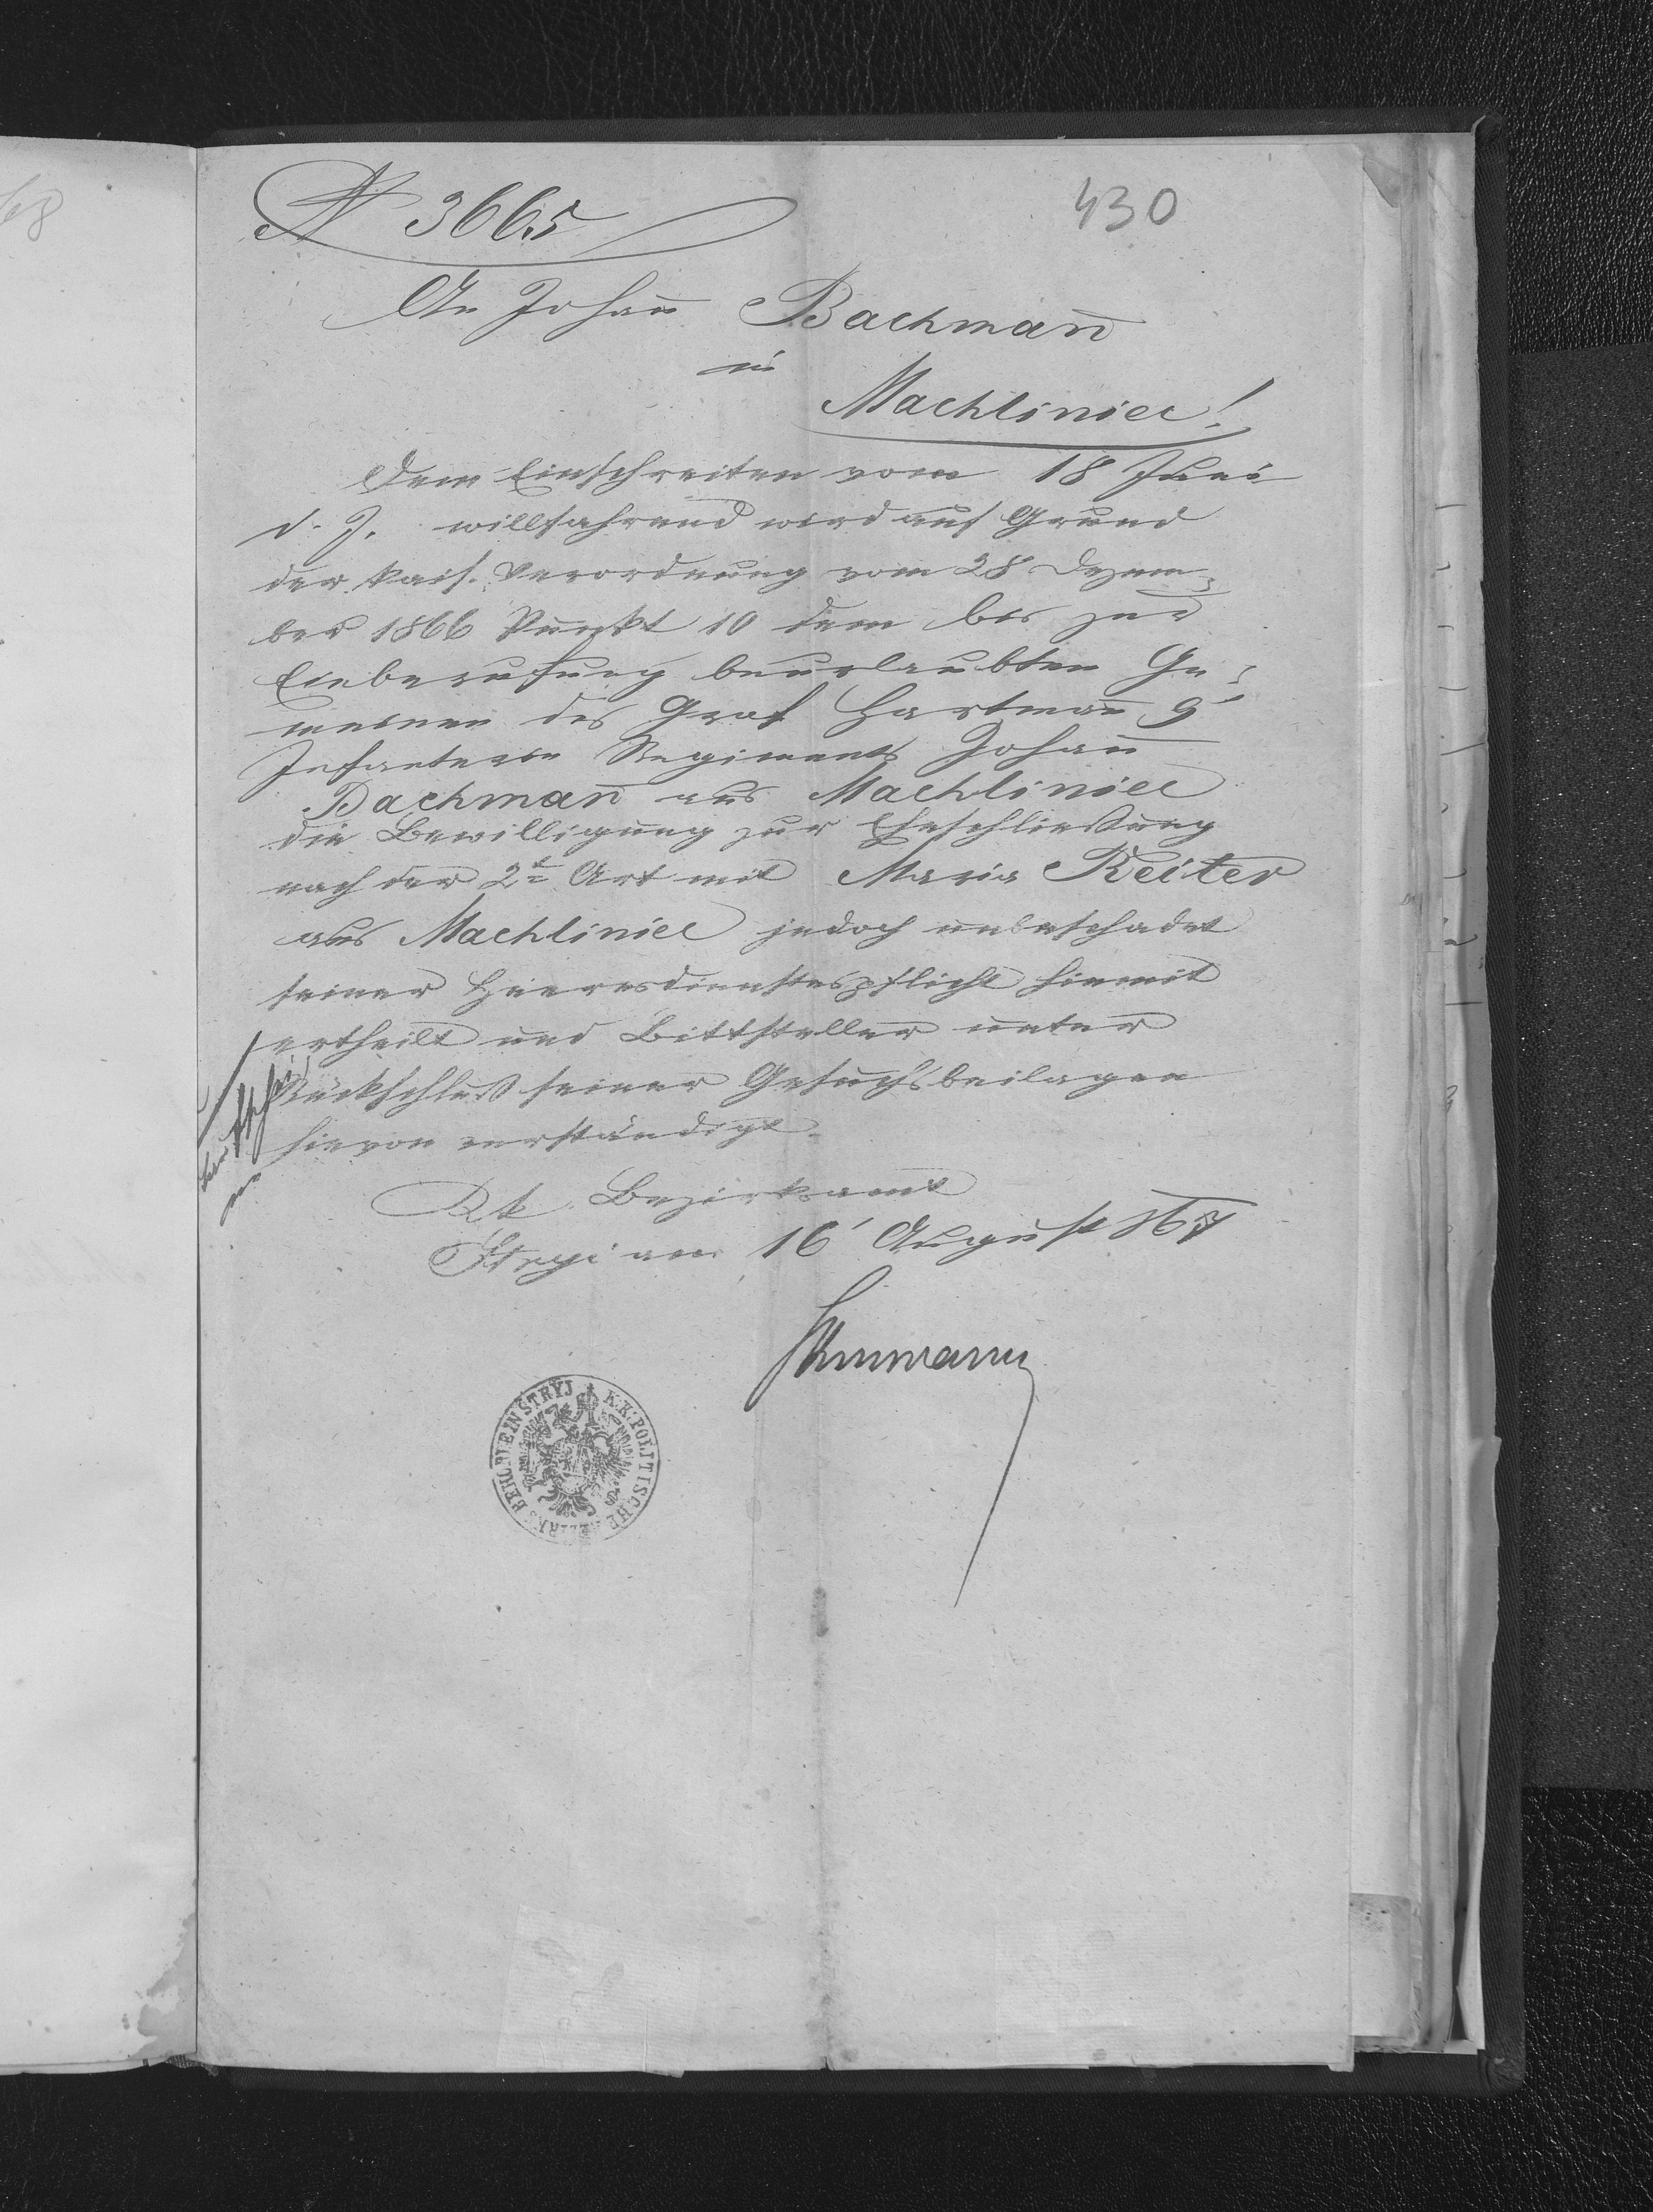 N 3665
430
An Johañ Bachmañ
in
Machliniec!
Dem Einschreiten vom 18 Juni
d. J. willfahrend wird auf Grund
der kais. Verordnung vom 28 Dezem-
ber 1866 Punkt 10 dem bis zur
Einberufung beurlaubten Ge-
meinen des Graf Hartmañ 9'
Infanterie Regiments Johañ
Bachmañ aus Machliniec
die Bewilligung zur Eheschließung
nach der 2t Art mit Maria Reiter
aus Machliniec jedoch unbeschadet
seiner Heeresdienstespflicht hiemit
ertheilt und Bittsteller unter
Rückschluß seiner Gesuchsbeilagen
hievon verständigt.
Kk Bezirksamt
Stryi am 16' August 867
K.K. POLITISCHE BEZIRKS BEHÖRDE IN STRYJ